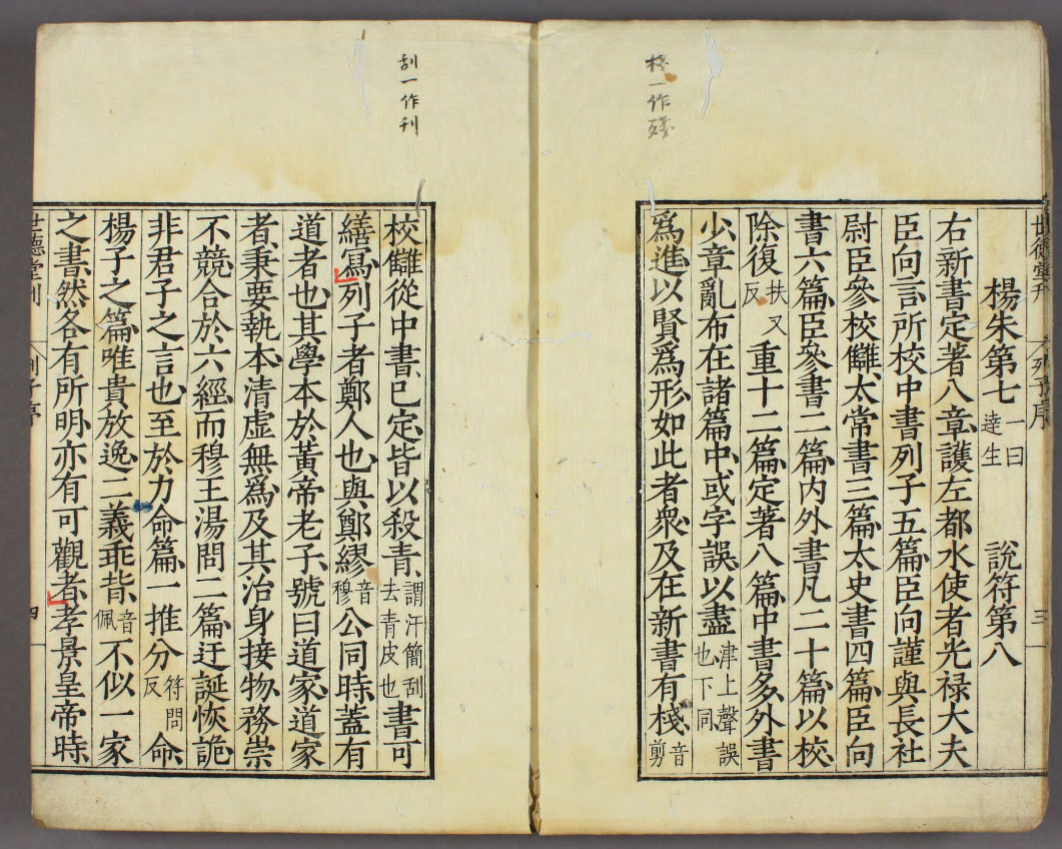 世德堂刊 列子序 三
楊朱第七 一曰逹生 說符第八
右新書定著八章護左都水使者光禄大夫
臣向言所校中書列子五篇臣向謹與長社
尉臣參校讎太常書三篇太史書四篇臣向
書六篇臣參書二篇内外書凡二十篇以校
除復扶又反重十二篇定著八篇中書多外書
少章亂布在諸篇中或字誤以盡津上聲誤也下同
爲進以賢爲形如此者衆及在新書有棧音剪
棧一作殘
校讎從中書已定皆以殺青謂汗簡刮去青皮也書可
繕寫列子者鄭人也與鄭繆音穆公同時蓋有
道者也其學本於黃帝老子號曰道家道家
者秉要執本清虛無爲及其治身接物務崇
不競合於六經而穆王湯問二篇迂誕恢詭
非君子之言也至於力命篇一推分符問反命
楊子之篇唯貴放逸二義乖背音佩不似一家
之書然各有所明亦有可觀者孝景皇帝時
刮一作刊
世德堂刊 列子序 四